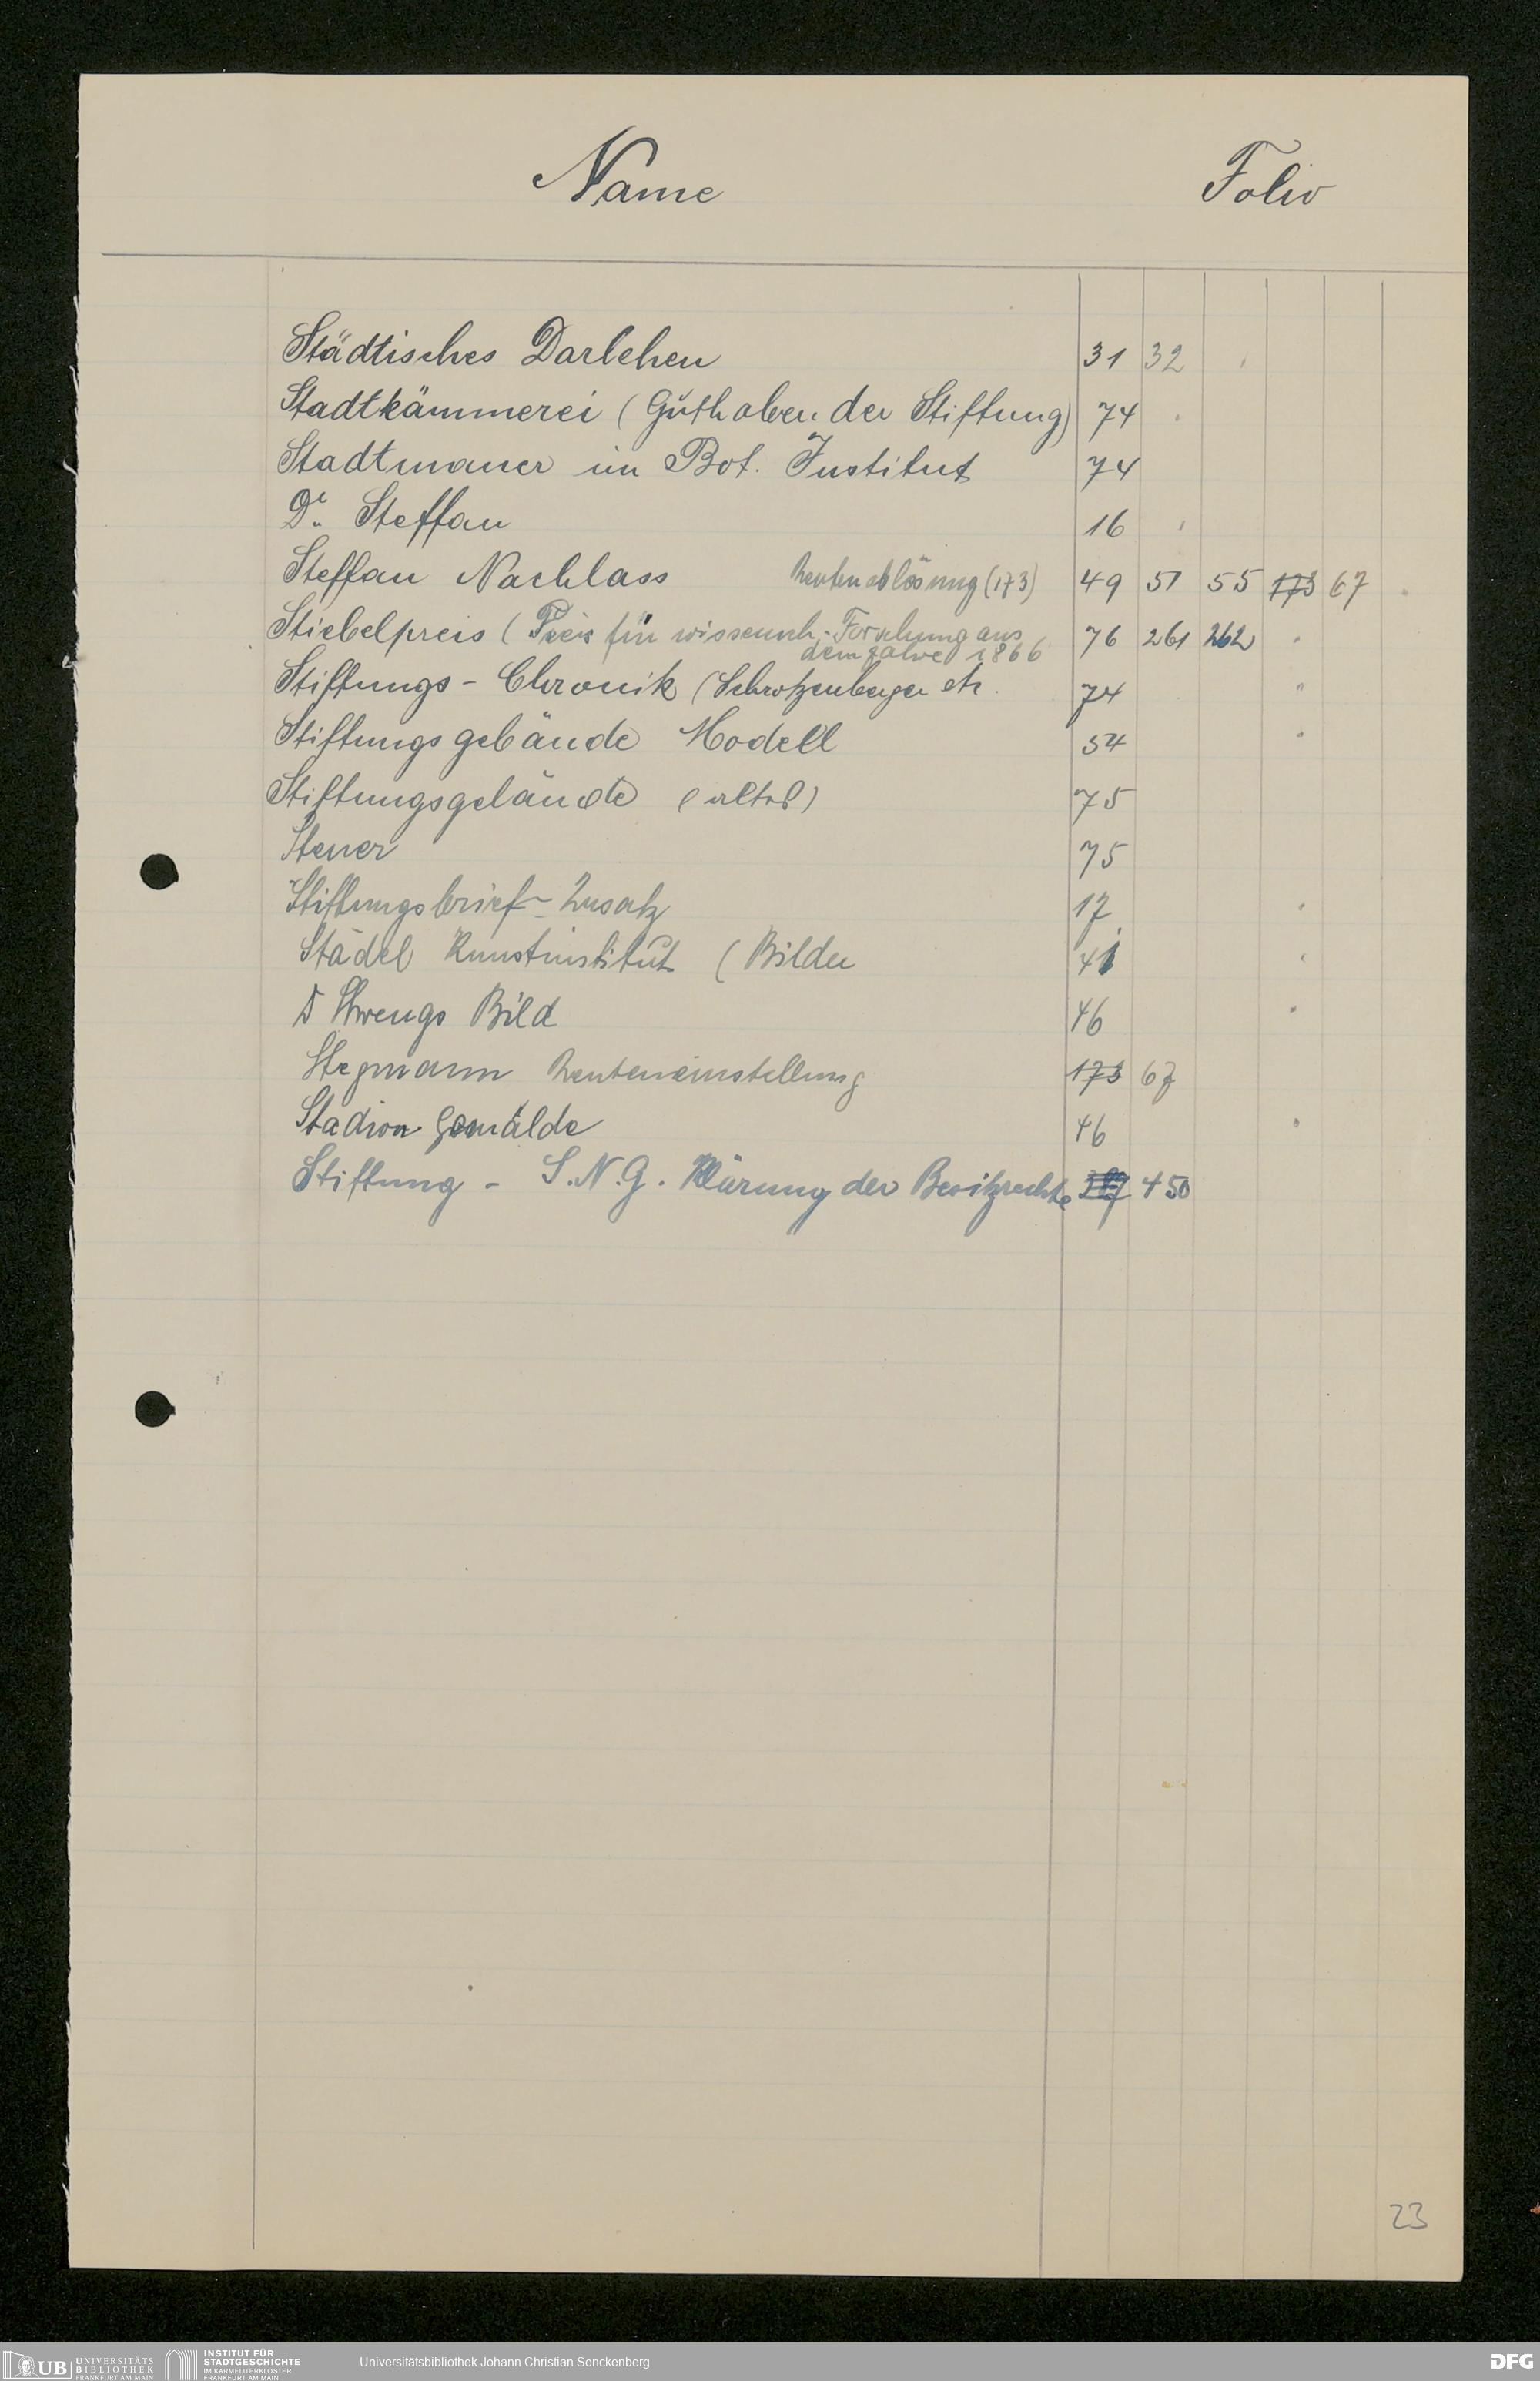 Name Folio
Städtisches Darlehen 31 32
Stadtkämmerei (Guthaben der Stiftung) 74
Stadtmauer im Bot. Institut 74
Dr. Steffan 16
Steffan Nachlass Rentenablösung (173) 49 51 55 173 67
Stiebelpreis (Preis für wissensch. Forschung aus 76 261 262
dem Jahre 1866
Stiftungs-Chronik (Schrotzenberger etc. 74
Stiftungsgebäude Modell 54
Stiftungsgelände (altes) 75
Steuer 75
Stiftungsbrief-Zusatz 17
Städel Kunstinstitut (Bilder 41
Bild 46
Stegmann Renteneinstellung 173 67
Stadion Gemälde 46
Stiftung - S.N.G. Klärung der Besitzrechte 450
23
UB UNIVERSITÄTS
BIBLIOTHEK
FRANKFURT AM MAIN
INSTITUT FÜR
STADTGESCHICHTE
IM KARMELITERKLOSTER
FRANKFURT AM MAIN
Universitätsbibliothek Johann Christian Senckenberg
DFG